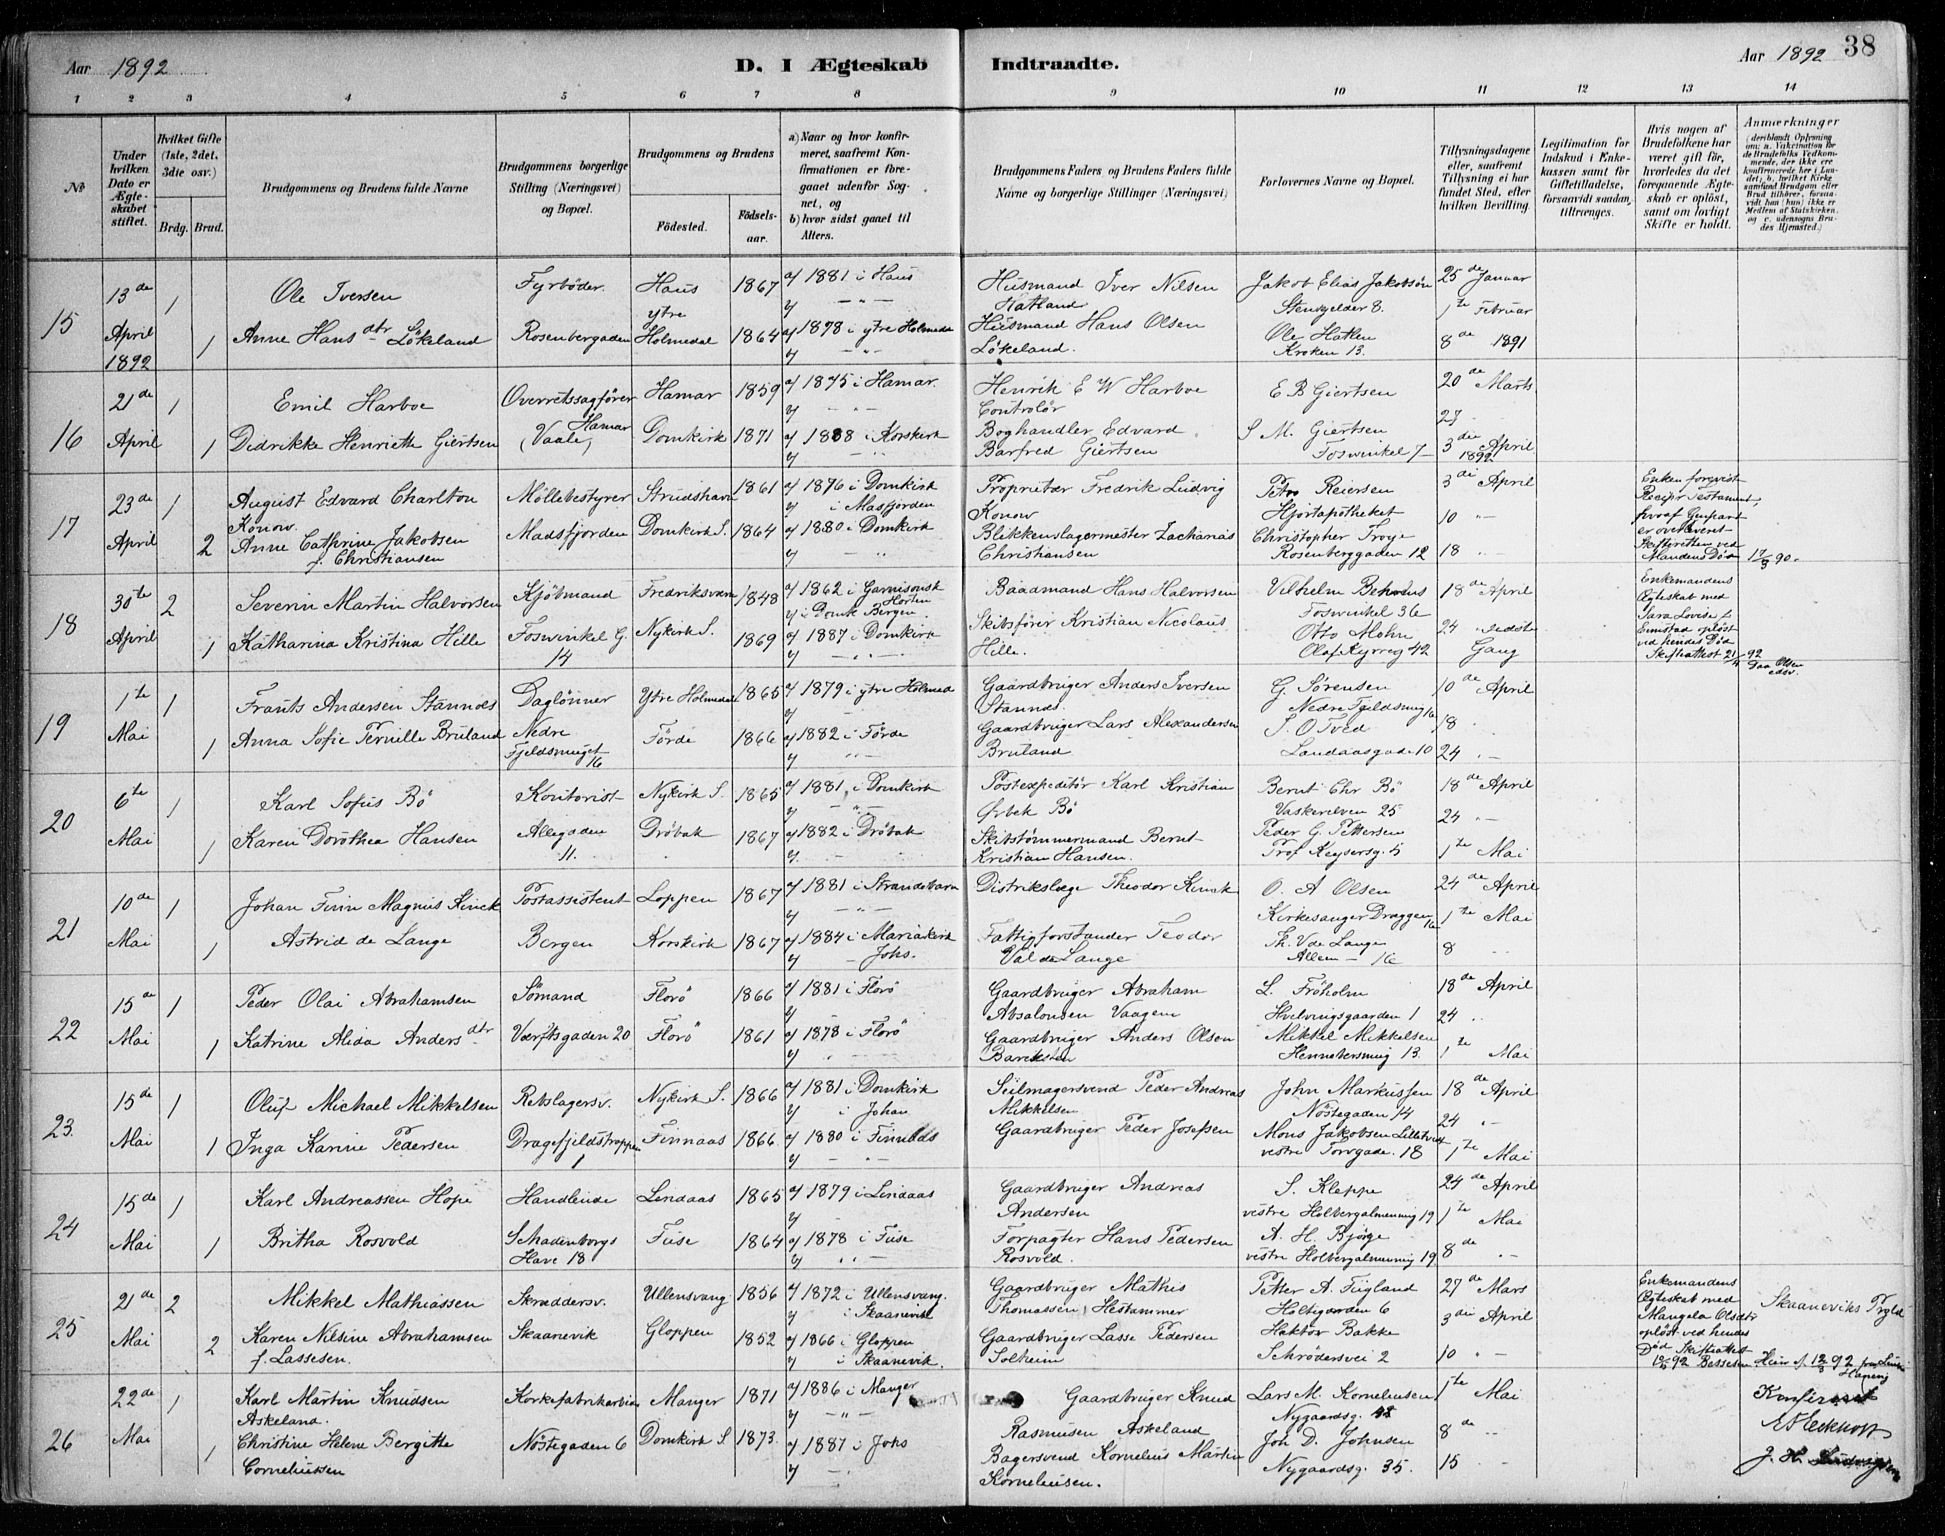 Aar 1892
D. I Ægteskab Indtraadte.
Aar 1892 38
1 2 3 4 5 6 7 8 9 10 11 12 13 14
No
Under hvilken Dato er Ægteskabet stiftet.
Hvilket Gifte (1ste, 2det, 3die osv.)
Brdg. Brud.
Brudgommens og Brudens fulde Navne
Brudgommens borgerlige Stilling (Næringsvei) og Bopæl.
Brudgommens og Brudens
Födested. Födsels-aar.
a) Naar og hvor konfirmeret, saafremt Konfirmationen er foregaaet udenfor Sognet, og
b) hvor sidst gaaet til Alters.
Brudgommens Faders og Brudens Faders fulde Navne og borgerlige Stillinger (Næringsvei)
Forlovernes Navne og Bopæl.
Tillysningsdagene eller, saafremt Tillysning ei har fundet Sted, efter hvilken Bevilling.
Legitimation for Indskud i Enkekassen samt for Giftetilladelse, forsaavidt saadan tiltrænges.
Hvis nogen af Brudefolkene har været gift för, hvorledes da det foregaaende Ægteskab er oplöst, samt om lovligt Skifte er holdt.
Anmærkninger
(deriblandt Oplysning om: a. Vakcination for de Brudefolks Vedkommende, der ikke ere konfirmerede her i Landet, b. hvilket Kirkesamfund Brudgom eller Brud tilhörer, forsaavidt han (hun) ikke er Medlem af Statskirken, og c. udensogns Brudes Hjemsted.)
15
13de April 1892
1 Ole Iversen Fyrböder Haus 1867 a/ 1881 i Haus
Husmand Iver Nilsen Hatland
Jakob Elias Jakobsön Stenkjelder 8.
25de Januar
1te Februar
1 Anne Hansdtr Lökeland Rosenbergaden ytre Holmedal 1864 a/ 1878 i ytre Holmeda
Husmand Hans Olsen Lökeland.
Ole Hatlen Kroken 13.
8de 1891
16
21de April
1 Emil Harboe Overretssagförer Hamar Hamar 1859 a/ 1875 i Hamar.
Henrik E W Harboe Controlör
E B Giertsen
20de Marts
27
1 Didrikke Henriette Giertsen (Vaale) Domkirk 1871 a/ 1888 i Korskirk
Boghandler Edvard Barfred Giertsen
S M. Giertsen Foswinkel 7
3die April 1892
17
23de April
1 August Edvard Charlton Konow. Möllebestyrer Strudshavn 1861 a/ 1876 i Domkirk
y i Masfjorden
Proprietær Fredrik Ludvig Konow
Peter Reiersen Hjortapotheket
3die April
10 "
2 Anne Cathrine Jakobsen f. Christiansen Madsfjorden Domkirk S. 1864 a/ 1880 i Domkirk
Blikkenslagermester Zacharias Christiansen
Christopher Troye Rosenberggaden 12
18 "
Enken forevist Recipr Testament, hvoraf Genpart er overleveret Skifteretten ved Mandens Död 17/3 90.
18
30te April
2 Severin Martin Halvorsen Kjöbmand Fredriksværn 1848 a/ 1862 i Garnisonsk Horten
y i Domk Bergen
Baadmand Hans Halvorsen
Vilhelm Behrens Foswinkel 36
18de April
1 Katharina Kristina Hille Foswinkel G. 14 Nykirk S. 1869 a/ 1887 i Domkirk
Skibsförer Kristian Nicolaus Hille.
Otto Mohn Olaf Kyrreg 42
24 " sidste Gang
Enkemandens Ægteskab med Sara Lovise f. Eimstad oplöst ved hendes Död Skifteattest 21/4 92
19
1te Mai
1 Frants Andersen Stannes Daglönner Ytre Holmedal 1865 a/ 1879 i ytre Holmed
Gaardbruger Anders Iversen Stannes.
G. Sörensen Nedre Fjeldsmug 16
10de April
18
1 Anna Sofie Pernille Bruland Nedre Fjeldsmuget 16 Förde 1866 a/ 1882 i Förde
Gaardbruger Lars Alexandersen Bruland
S. O Tved Landaasgade 10
24 "
20
6te Mai
1 Karl Sofus Bö Kontorist Nykirk S. 1865 a/ 1881 i Domkirk
Postexpeditör Karl Kristian Örbek Bö
Bernt Chr Bö Vaskerelven 25
18de April
24 "
1 Karen Dorothea Hansen Allegaden 11. Dröbak 1867 a/ 1882 i Dröbak
Skibstömmermand Bernt Kristian Hansen.
Peder G. Pettersen Prof Keysersg. 5
1te Mai
21
10de Mai
1 Johan Finn Magnus Kinck Postassistent Loppen 1867 a/ 1881 i Strandebarm
Distriktslæge Theodor Kinck
O. A Olsen Kirkesanger Dreggen 16
24de April
1te Mai
1 Astrid de Lange Bergen Korskirk 1867 a/ 1884 i Mariakirk
y Johs.
Fattigforstander Teodor Val de Lange
Th. V de Lange Alleen 16
8
22
15de Mai
1 Peder Olai Abrahamsen Sömand Florö 1866 a/ 1881 i Florö
Gaardbruger Abraham Absalonsen Vaagen
L. Fröholm Hvelvingsgaarden 1
18de April
24
1 Katrine Alida Andersdtr Værftsgaden 20 Florö 1861 a/ 1878 i Florö
Gaardbruger Anders Olson Bareksten
Mikkel Mikkelsen Hennebersmug 13.
1te Mai
23.
15de Mai
1 Oluf Michael Mikkelsen Rebslagersv. Nykirk S. 1866 a/ 1881 i Domkirk
y i Johan
Seilmagersvend Peder Andreas Mikkelsen
John Markussen Nöstegaden 14
18de April
24 "
1 Inga Karine Pedersen Dragefjeldstrappen 1 Finnaas 1866 a/ 1880 i Finnaas
Gaardbruger Peder Josefsen
Mons Jakobsen Lilletvedt vestre Torvgade. 18
1te Mai
24
15de Mai
1 Karl Andreassen Hope Handlende Lindaas 1865 a/ 1879 i Lindaas
Gaardbruger Andreas Andersen
S. Kleppe vestre Holbergalmenning 19
24de April
1te Mai
1 Britha Rosvold Schadenborgs Have 18 Fuse 1864 a/ 1878 i Fuse
Forpagter Hans Pedersen Rosvold.
A. H. Björge vestre Holbergalmenning 19
8de "
25
21de Mai
2 Mikkel Mathiassen Skræddersv. Ullensvang 1856 a/ 1872 i Ullensvang.
y i Skaanevik
Gaardbruger Mathis Thomassen Hestammer
Petter A. Fugland Holtegaarden 6
27de Mars
3die April
2 Karen Nilsine Abrahamsen f. Lassesen. Skaanevik Gloppen 1852 a/ 1866 i Gloppen
y i Skaanevik.
Gaardbruger Lasse Pedersen Solheim
Haktor Bakke Schrödersvei 2
10 "
Enkemandens Ægteskab med Mangela Olsdtr oplöst ved hendes Död Skifteattest
Skaaneviks Prgld
26
22de Mai
1 Karl Martin Knudsen Askeland. Korkefabrikarbeid Manger 1871 a/ 1886 i Manger
Gaardbruger Knud Rasmusen Askeland
Lars M. Korneliussen Nygaardsg. 48
1te Mai
8de
1 Christine Helene Bergitte Corneliussen Nöstegaden 6 Domkirk S 1873. a/ 1887 i Johs
Bagersvend Kornelius Martin Korneliussen.
Joh D. Johnsen Nygaardsg. 35.
15
Konfereret